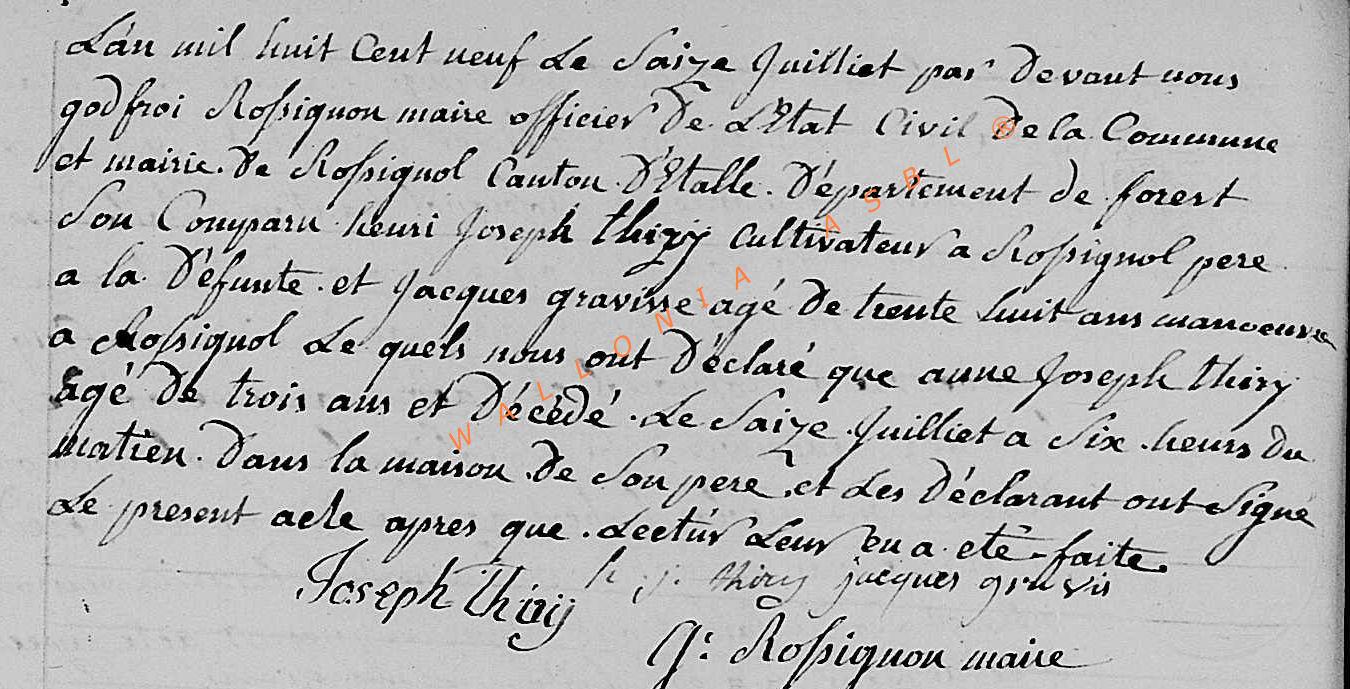 L'an mil huit Cent neuf Le Saize Juilliet par Devant nous
godfroi Rossignon maire officier De L'Etat Civil De la Commune
et mairie De Rossignol Canton D'Etalle Département de forest
Son Comparu henri Joseph thiry Cultivateur a Rossignol pere
a la Défunte et Jacques gravisse agé De trente huit ans manoeuvre
a Rossignol Le quels nous ont Déclaré que anne Joseph thiry
agé De trois ans et Décédé Le Saize Juilliet a Six heurs Du
matien Dans la maison De Son pere et Les Déclarant ont Signé
Le present acte apres que Lectur Leur en a eté faite
Joseph thiry h j thiry jacques gravis
G: Rossignon maire
WALLONIA ASBL ©